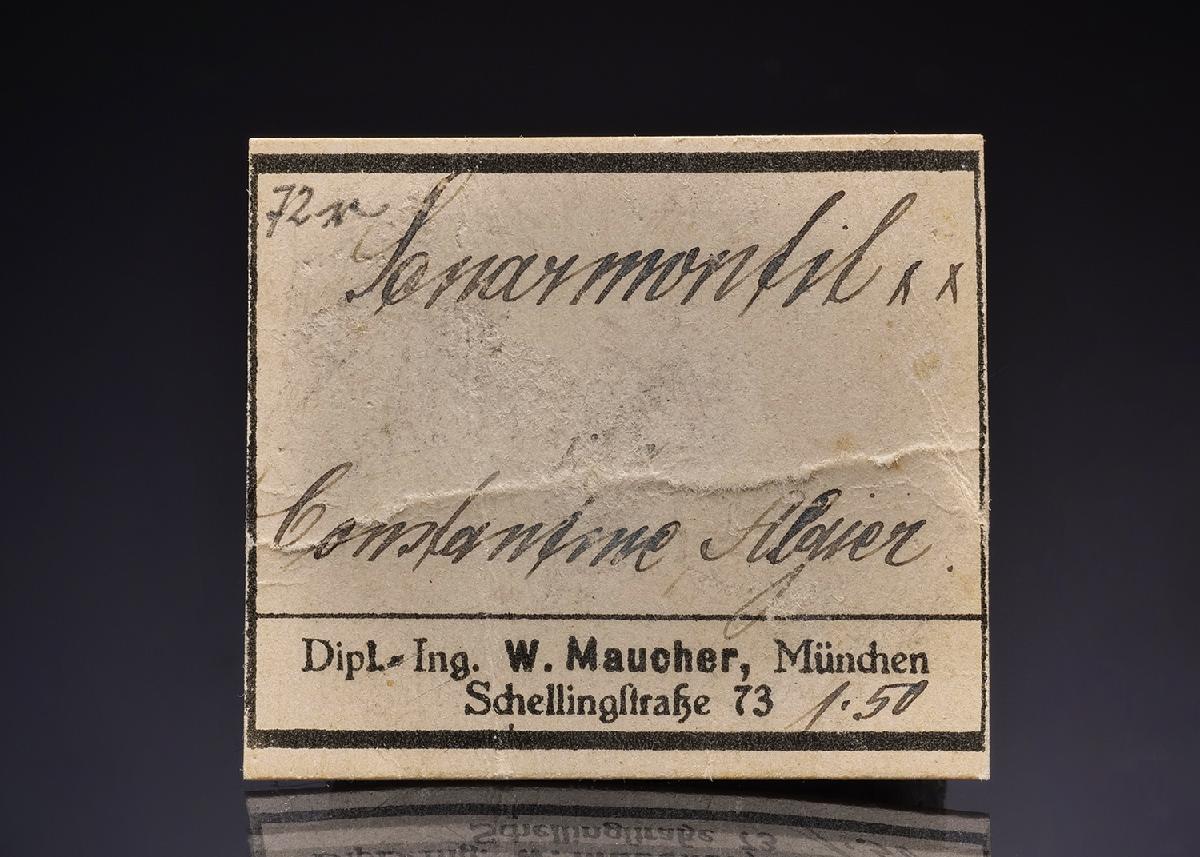 72r Senarmontit x x
Constantine Algier.
Dipl.-Ing. W. Maucher, München
Schellingſtraße 73 1.50